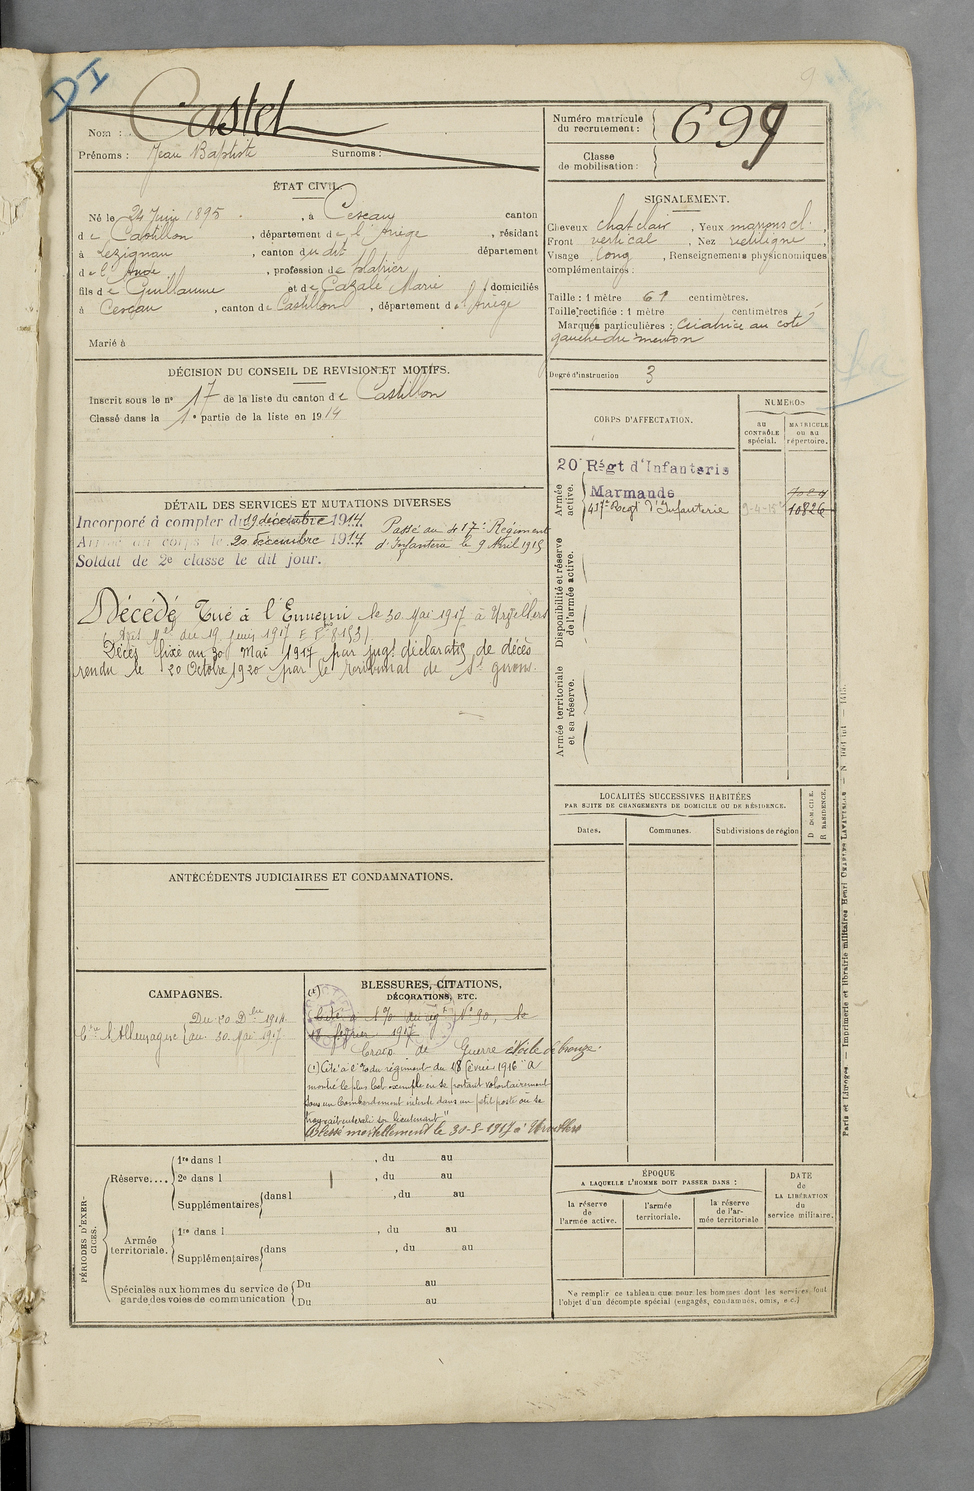 DI
Nom : Castel
Prénoms : Jean Baptiste Surnoms :
Numéro matricule du recrutement : 699
Classe de mobilisation :
ÉTAT CIVIL.
Né le 24 Juin 1895, à Cescau canton
de Castillon, département de l'Ariège, résidant
à Lezignan, canton du dit département
de l'Aude, profession de platrier
fils de Guillaume et de Cazale Marie domiciliés
à Cescau, canton de Castillon, département de Ariège
Marié à
SIGNALEMENT.
Cheveux chat clair, Yeux marrons cl.
Front vertical, Nez rectiligne,
Visage long, Renseignements physionomiques
complémentaires :
Taille : 1 mètre 61 centimètres.
Taille rectifiée : 1 mètre centimètres
Marques particulières : Cicatrice au coté
gauche du menton
Degré d'instruction 3
DÉCISION DU CONSEIL DE REVISION ET MOTIFS.
Inscrit sous le n° 17 de la liste du canton de Castillon
Classé dans la 1e partie de la liste en 1914
CORPS D'AFFECTATION.
NUMÉROS
au CONTRÔLE spécial.
MATRICULE ou au répertoire.
Armée active.
20e Régt d'Infanterie
Marmande
417e Regt d'Infanterie 9-4-15 10826
Disponibilité et réserve de l'armée active.
Armée territoriale et sa réserve.
DÉTAIL DES SERVICES ET MUTATIONS DIVERSES
Incorporé à compter du 19 décembre 1914.
Arrivé au corps le 20 décembre 1914.
Soldat de 2e classe le dit jour.
Passé au 417e Régiment
d'Infanterie le 9 Avril 1915
Décédé Tué à l'Ennemi le 30 Mai 1917 à
Décès fixé au 30 Mai 1917 par jugt déclaratif de décès
rendu le 20 Octobre 1920 par le Tribunal de St girons.
LOCALITÉS SUCCESSIVES HABITÉES
PAR SUITE DE CHANGEMENTS DE DOMICILE OU DE RÉSIDENCE.
Dates. Communes. Subdivisions de région
D DOMICILE.
R RÉSIDENCE.
ANTÉCÉDENTS JUDICIAIRES ET CONDAMNATIONS.
CAMPAGNES.
Ctre l'Allemagne
Du 20 Dbre 1914
au 30 Mai 1917
BLESSURES, CITATIONS,
DÉCORATIONS, ETC.
(1)
Cité à l'O/ du régt N° 90, le
18 février 1917
Croix de Guerre étoile de bronze.
(1) Cité à l'O/ du régiment du 18 février 1916 "A
montré le plus bel exemple en se portant volontairement
sous un bombardement intense dans un petit poste où se
trouvait enseveli son lieutenant"
Blessé mortellement le 30-5-1917 à
PÉRIODES D'EXERCICES.
Réserve....
1re dans l , du au
2e dans l , du au
Supplémentaires dans l , du au
Armée territoriale.
1re dans l , du au
Supplémentaires dans , du au
Spéciales aux hommes du service de
garde des voies de communication
Du au
Du au
ÉPOQUE
A LAQUELLE L'HOMME DOIT PASSER DANS :
la réserve de l'armée active.
l'armée territoriale.
la réserve de l'armée territoriale
DATE de LA LIBÉRATION du service militaire.
Ne remplir ce tableau que pour les hommes dont les services font
l'objet d'un décompte spécial (engagés, condamnés, omis, etc.)
Paris et Limoges. — Imprimerie et librairie militaires Henri CHARLES-LAVAUZELLE